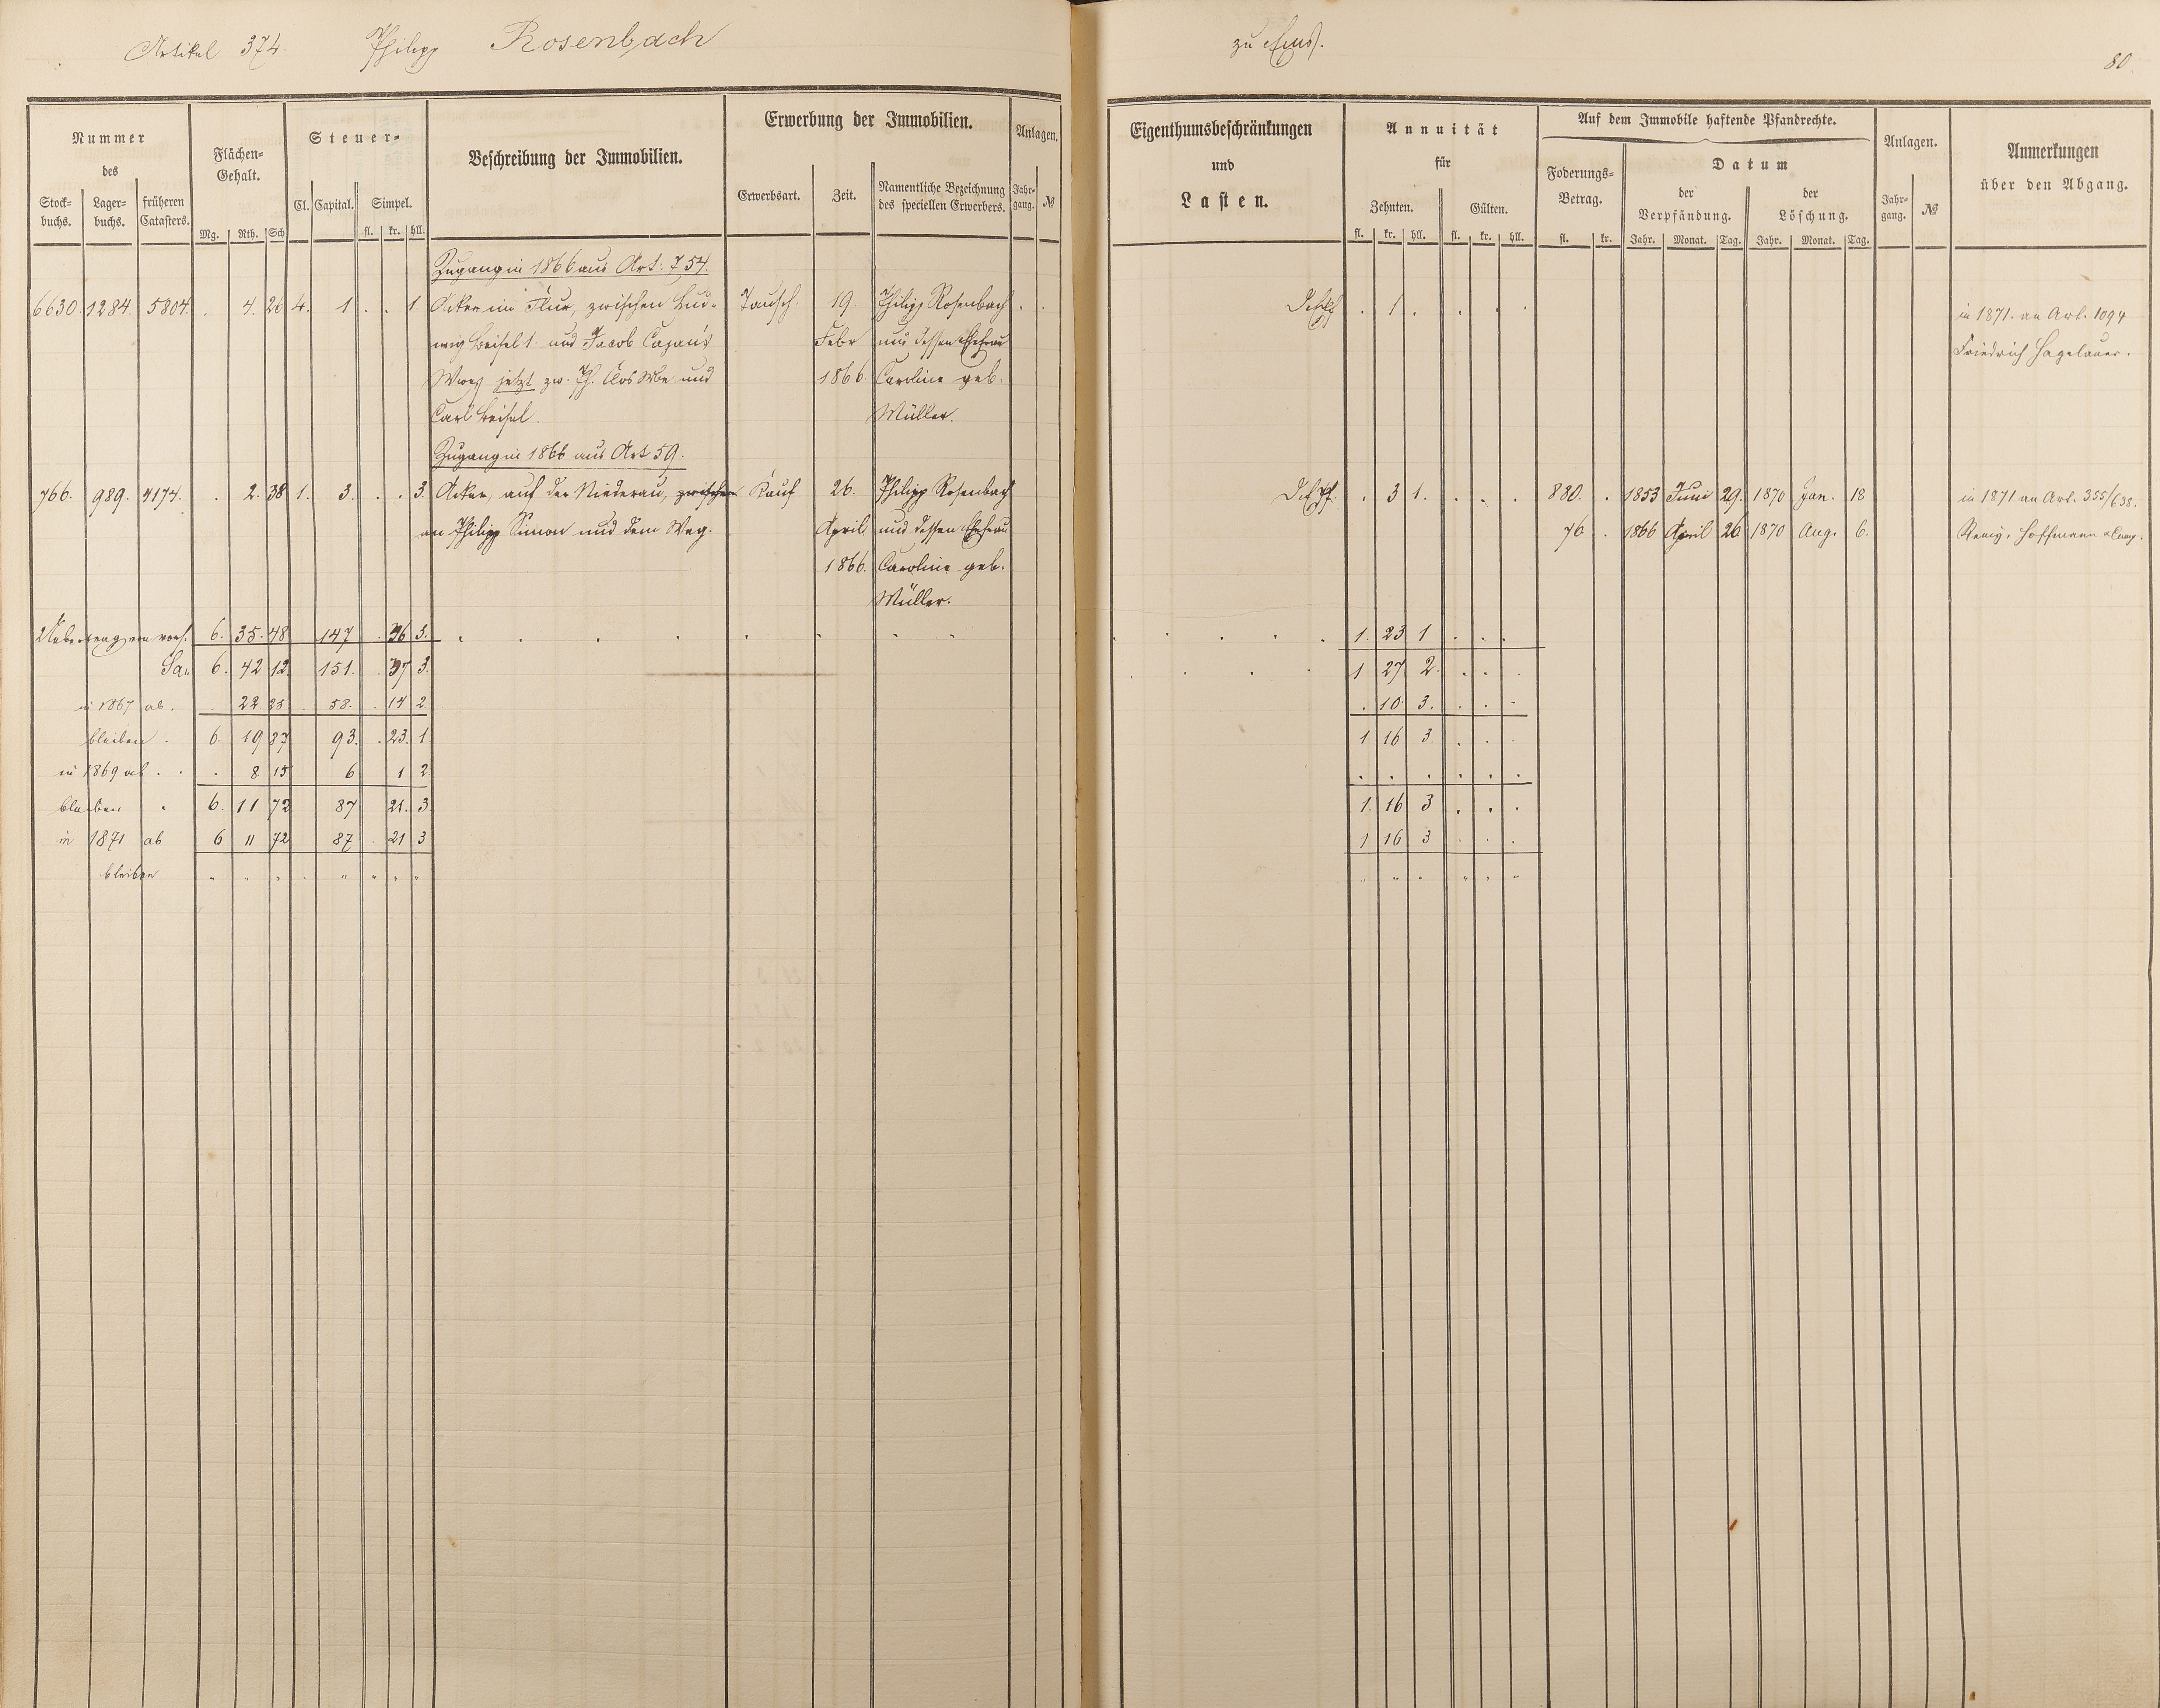 Artikel 374. Philipp Rosenbach zu Ems.
80
Nummer des
Stock-buchs. Lager-buchs. früheren Catasters.
Flächen-Gehalt.
Mg. Rth. Sch
Steuer-
Cl. Capital. Simpel.
fl. kr. hll.
Beschreibung der Immobilien.
Erwerbung der Immobilien.
Erwerbsart. Zeit. Namentliche Bezeichnung des speciellen Erwerbers.
Anlagen.
Jahr-gang. №
Eigenthumsbeschränkungen
und
Lasten.
Annuität
für
Zehnten. Gülten.
fl. kr. hll. fl. kr. hll.
Auf dem Immobile haftende Pfandrechte.
Foderungs-Betrag.
fl. kr.
Datum
der Verpfändung. der Löschung.
Jahr. Monat. Tag. Jahr. Monat. Tag.
Anlagen.
Jahr-gang. №
Anmerkungen
über den Abgang.
Zugang in 1866 aus Art. 754.
6630. 1284. 5804. . 4. 26 4. 1 . . 1. Acker im Flur, zwischen Lud- Tausch. 19. Philipp Rosenbach . . . 1 . . . . in 1871. an Art. 1094
wig Beisel 1. und Jacob Cajan's Febr und dessen Ehefrau Friedrich Hagelauer.
Weg jetzt zw. Ph. und 1866. Caroline geb.
Carl Beisel. Müller.
Zugang in 1866 aus Art 59.
766. 989. 4174. . 2. 38 1. 3. . . 3. Acker, auf der Niederau, zwischen Kauf 26. Philipp Rosenbach . 3 1. . . . 880. . 1853 Juni 29. 1870 Jan. 18 in 1871 an Art. 355/638.
an Philipp Simon und dem Weg. April und dessen Ehefrau 76 . 1866 April 26 1870 Aug. 6. Hoffmann & Comp.
1866. Caroline geb.
Müller.
Uebertrag von vorh. 6. 35. 48 147 . 36 3. 1. 23 1 . . .
Sa. 6. 42 12. 151. . 37 3. 1 27 2. . . .
in 1867 ab. . 22 25 . 58. . 14 2 . 10. 3. . . .
bleiben . 6. 19 87 93. . 23. 1 1 16 3. . . .
in 1869 ab . . . 8 15 6 1 2. . . . . . .
bleiben . 6. 11 72 87 21. 3. 1. 16 3 . . .
in 1871 ab 6 11 72 87 . 21 3 1 16 3 . . .
bleiben " " " . " " " " " " " " " "